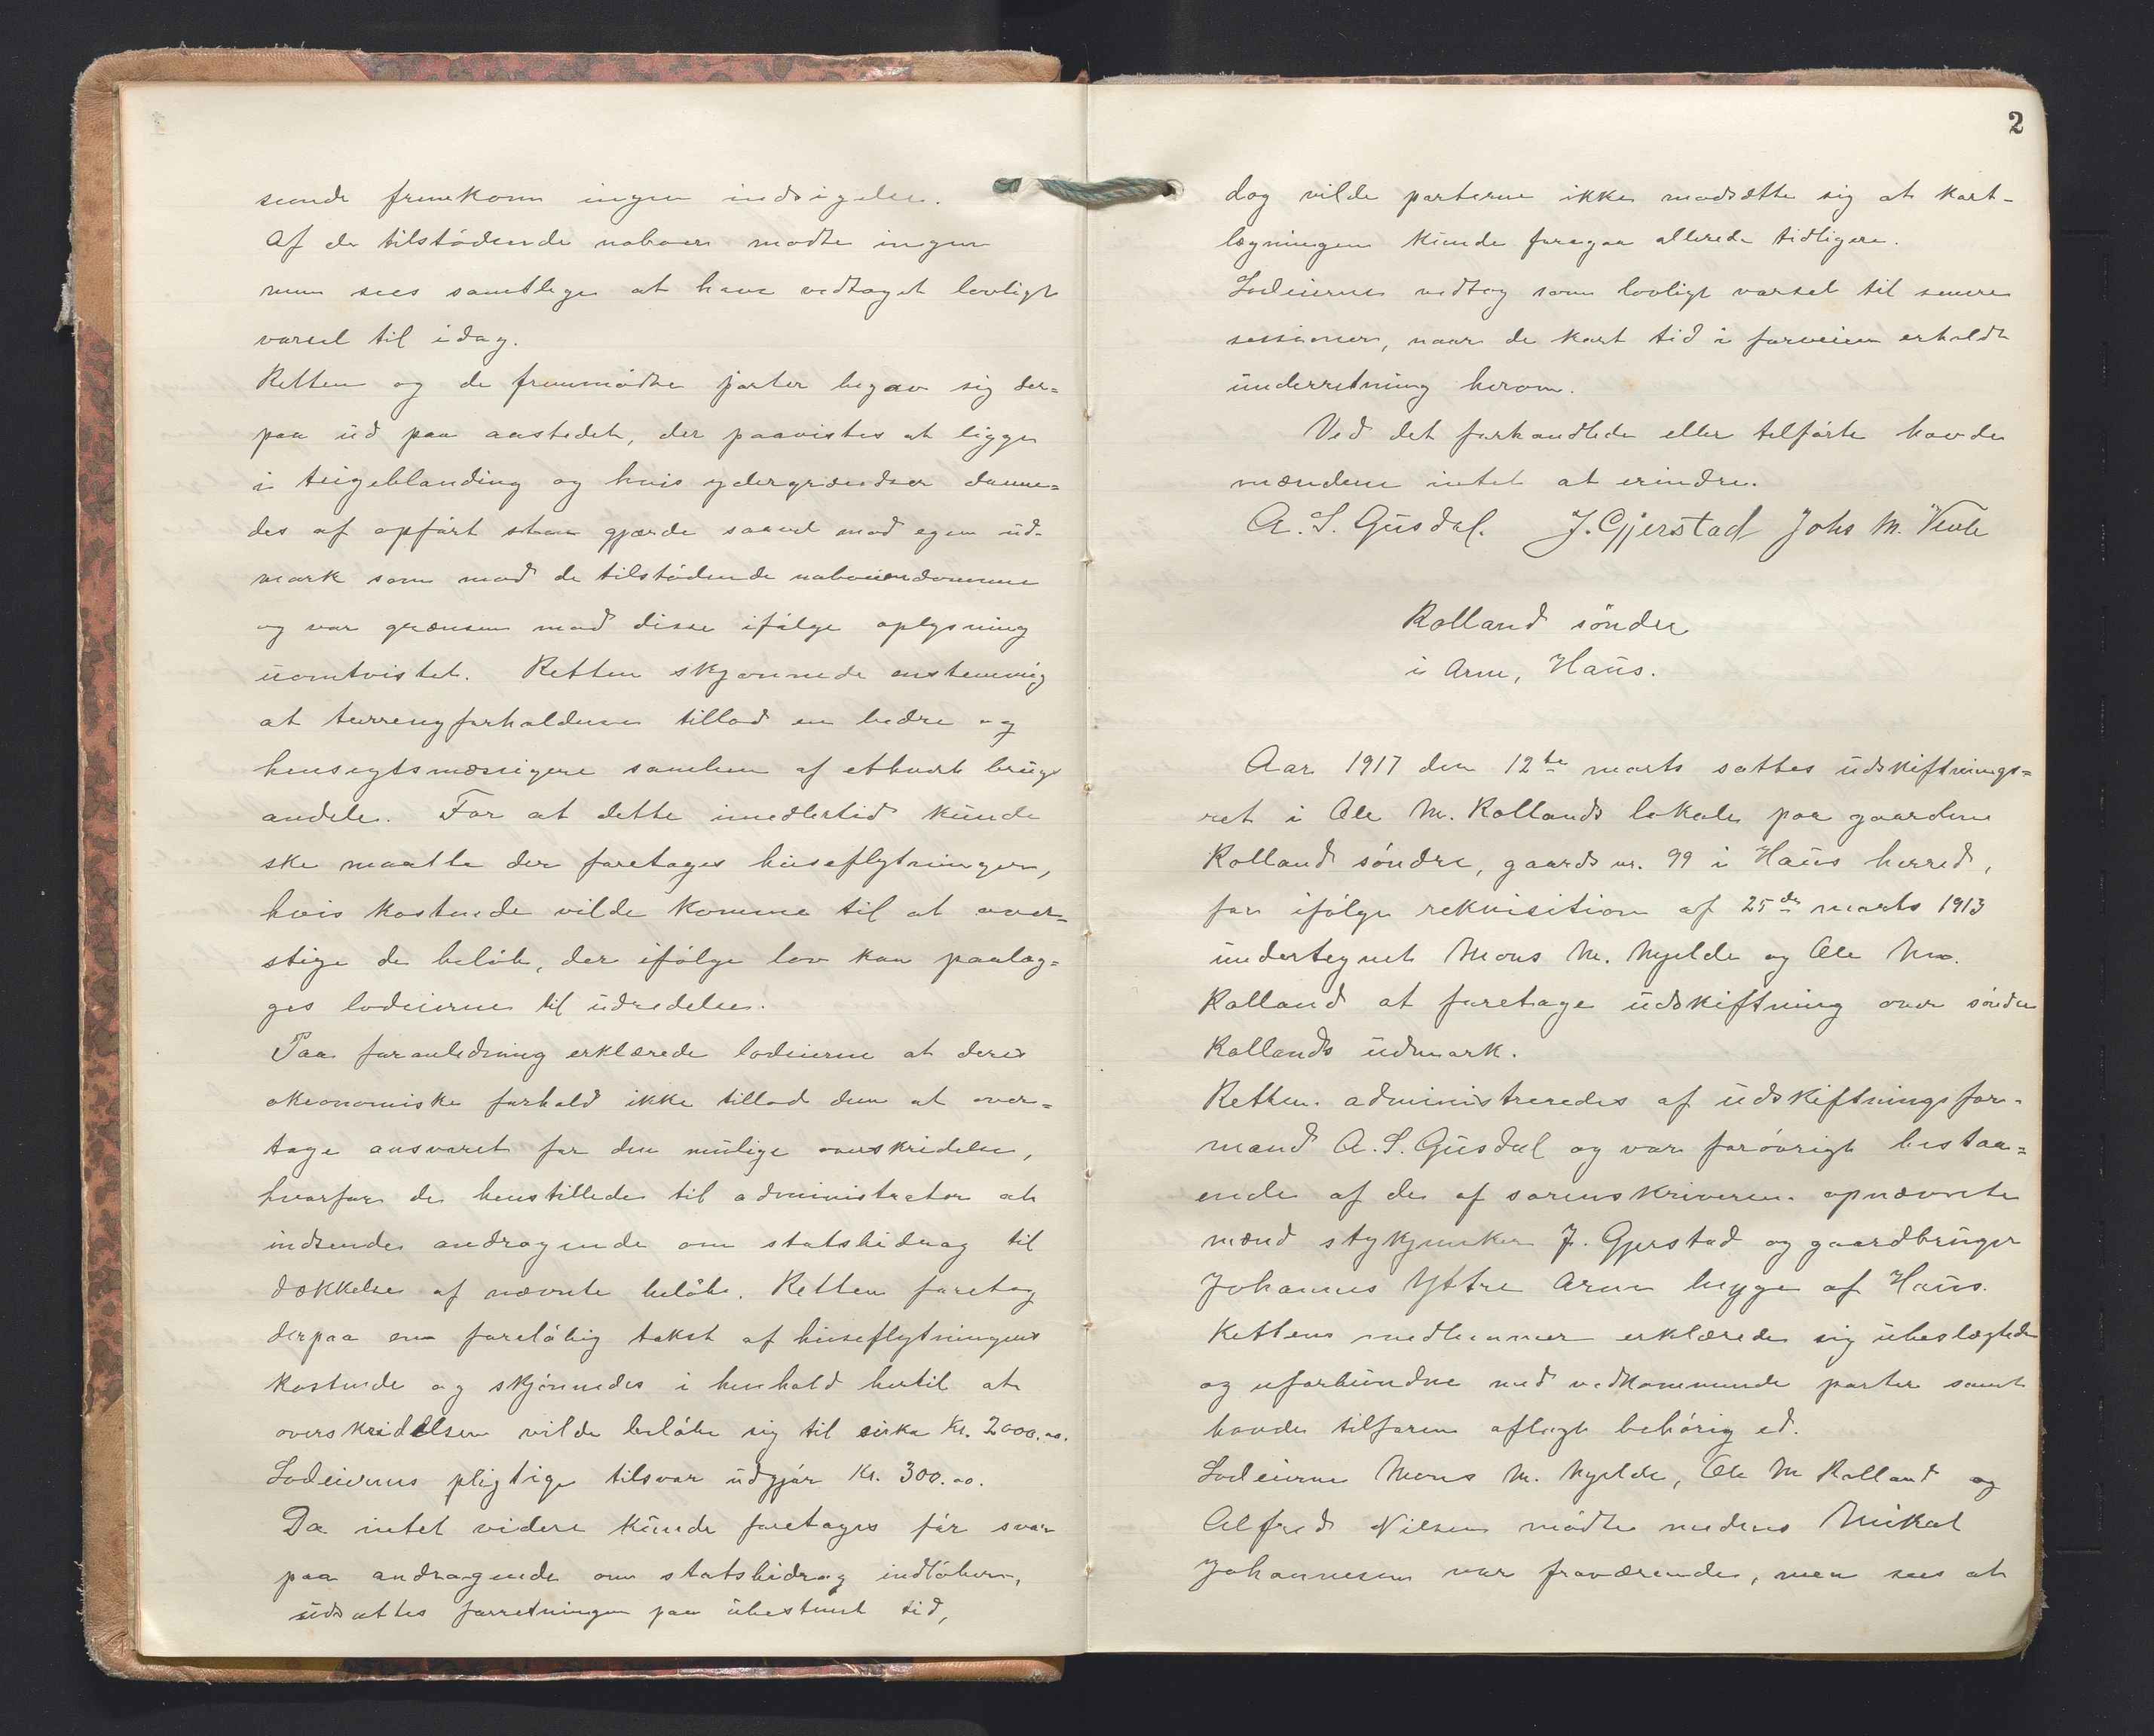 sende fremkom ingen indsigelse.
Af de tilstødende naboer mødte ingen
men sees samtlige at have vedtaget lovligt
varsel til idag.
Retten og de fremmødte parter begav sig der=
paa ud paa aastedet, der paavistes at ligge
i teigeblanding og hvis ydergrændser danne=
des af opført sten gjærde saavel mod egen ud-
mark som mod de tilstødende naboeiendomme
og var grænsen mod disse ifølge oplysning
uomtvistet. Retten skjønnede enstemmig
at terrengforholdene tillod en bedre og
hensigtsmæssigere samlen af ethvert brugs
andele. For at dette imedlertid kunde
ske maatte der foretages huseflytninger,
hvis kostende vilde komme til at over=
stige de beløb, der ifølge lov kan paalæg=
ges lodeierne til udredelse.
Paa foranledning erklærede lodeierne at deres
økonomiske forhold ikke tillod dem at over=
tage ansvaret for den mulige overskridelse,
hvorfor de henstillede til administrator at
indsende andragende om statsbidrag til
dækkelse af nævnte beløb. Retten foretog
derpaa en foreløbig takst af huseflytningens
kostende og skjønnedes i henhold hertil at
overskridelsen vilde beløbe sig til cirka Kr. 2000.00.
Lodeiernes pligtige tilsvar udgjør Kr. 300.00.
Da intet videre kunde foretages før svar
paa andragende om statsbidrag indløber,
udsattes forretningen paa ubestemt tid,
2
dog vilde parterne ikke modsætte sig at kart-
lægningen kunde foregaa allerede tidligere.
Lodeierne vedtog som lovligt varsel til senere
sessioner, naar de kort tid i forveien erholdt
underretning herom.
Ved det forhandlede eller tilførte havde
mændene intet at erindre.
A. S. Gusdal. J. Gjerstad Johs M.
Rolland sönder
i Arne, Haus.
Aar 1917 den 12te marts sattes udskiftnings=
ret i Ole M. Rollands lokale paa gaarden
Rolland søndre, gaards nr. 99 i Haus herred,
for ifølge rekvisition af 25de marts 1913
undertegnet Mons M. Mjelde og Ole M.
Rolland at foretage udskiftning over søndre
Rollands udmark.
Retten administreredes af udskiftningsfor-
mand A. S. Gusdal og var forøvrigt bestaa=
ende af de af sorenskriveren opnævnte
mænd stykjunker J. Gjerstad og gaardbruger
Johannes Yttre Arne begge af Haus.
Rettens medlemmer erklærede sig ubeslægtede
og uforbundne med vedkommende parter samt
havde tilforn aflagt behørig ed.
Lodeierne Mons M. Mjelde, Ole M Rolland og
Alfred Nilsen mødte medens Mikal
Johannesen var fraværende, men sees at